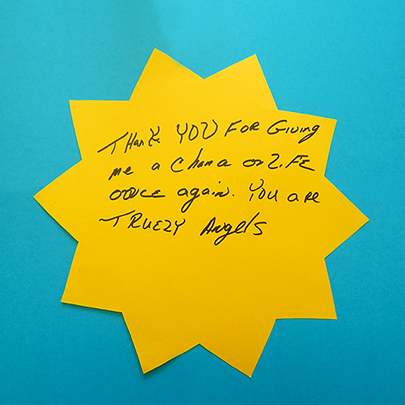 Thank YOU FOR Giving
me a Chana on Life
once again. You are
TRUELY Angels